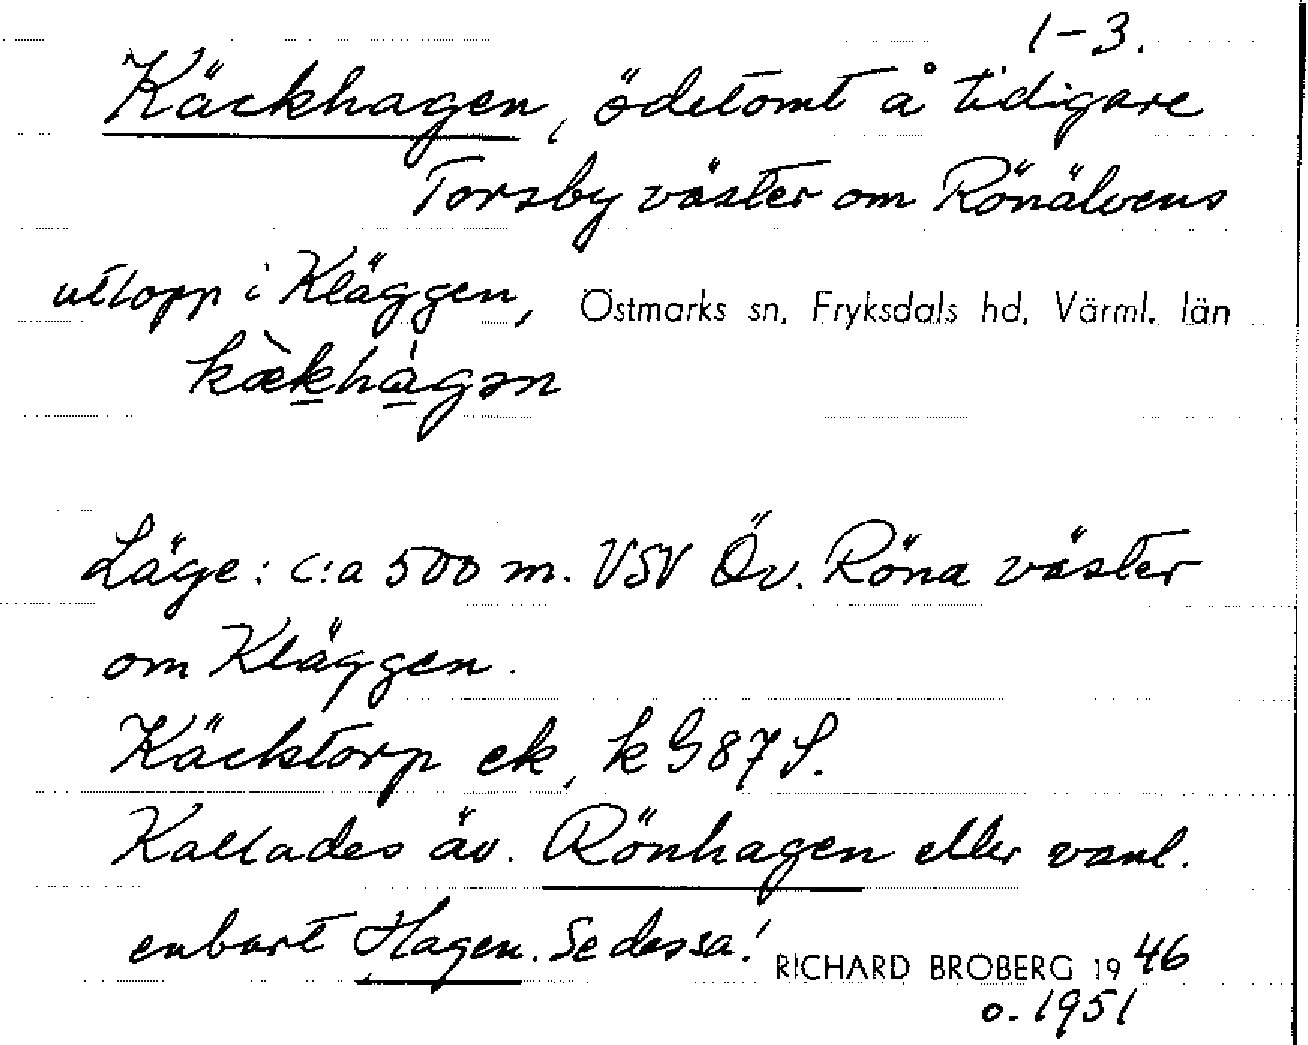 1-3.
Käckhagen, ödetomt å tidigare
Torsby väster om Rönälvens
utlopp i Kläggen, Östmarks sn. Fryksdals hd. Värml. län
kæ̀khàgən
Läge: c:a 500 m. VSV Öv. Röna väster
om Kläggen.
Käcktorp ek, k G 87 S.
Kallades äv. Rönhagen eller vanl.
enbart Hagen. Se dessa!
RICHARD BROBERG 1946
o. 1951